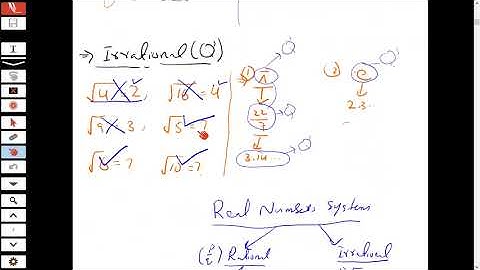 ⇒ Irrational (Q')
√4 = 2, √16 = 4
√9 = 3, √5 = ?
√10 = ?
① π → Q'
22/7 → Q'
3.14... → Q'
② e → Q'
2.3...
Real Numbers Systems
(p/q) Rational Irrational